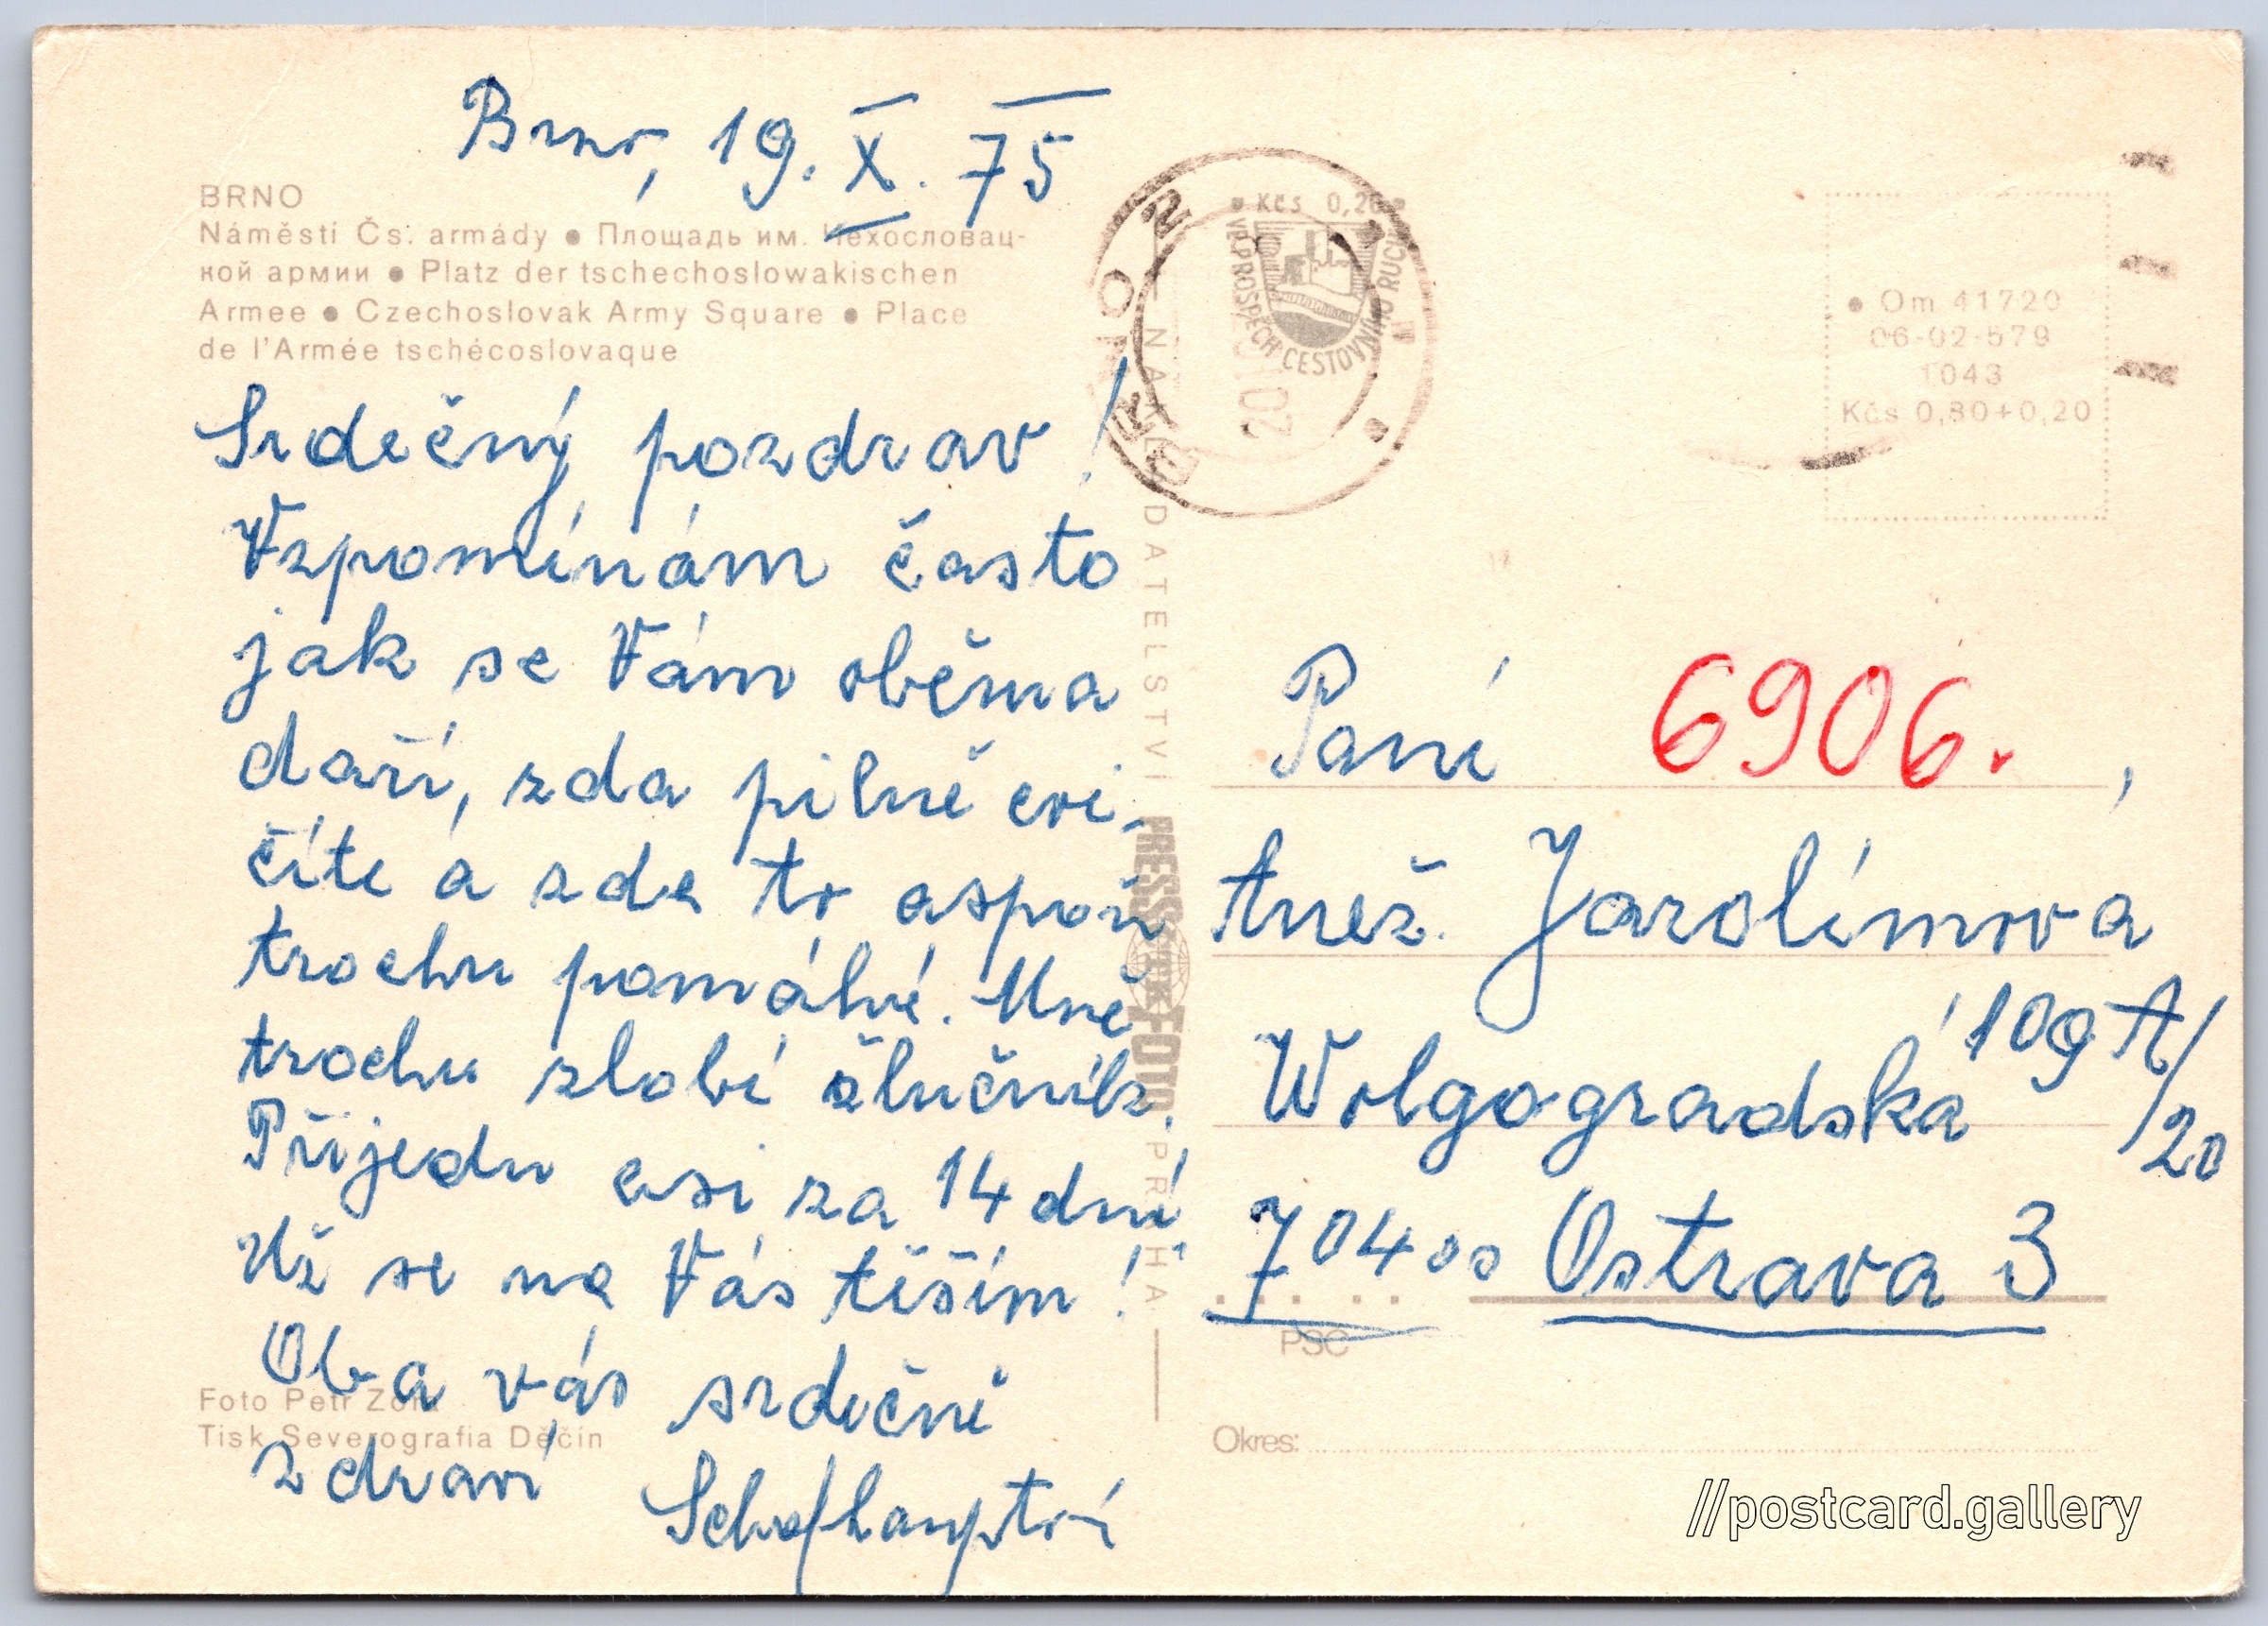 Brno, 19. X. 75
BRNO
Náměstí Čs. armády • Площадь им. Чехословац-
кой армии • Platz der tschechoslowakischen
Armee • Czechoslovak Army Square • Place
de l'Armée tschécoslovaque
Srdečný pozdrav!
Vzpomínám často
jak se Vám oběma
daří, zda pilně cvi-
číte a zda to aspoň
trochu pomáhá. Mně
trochu zlobí žlučník.
Přijedu asi za 14 dní
Už se na Vás těším!
Oba vás srdečně
zdraví
Foto Petr Zora
Tisk Severografia Děčín
NAKLADATELSTVÍ PRESSFOTO PRAHA
BRNO 2
20.10
• Kčs 0,20 •
VE PROSPĚCH CESTOVNÍHO RUCHU
• Om 41720
06-02-579
1043
Kčs 0,80+0,20
Paní 6906. ,
Anež. Jarolímová
Wolgogradská 109 A/20
704 00 Ostrava 3
PSČ
Okres:
//postcard.gallery